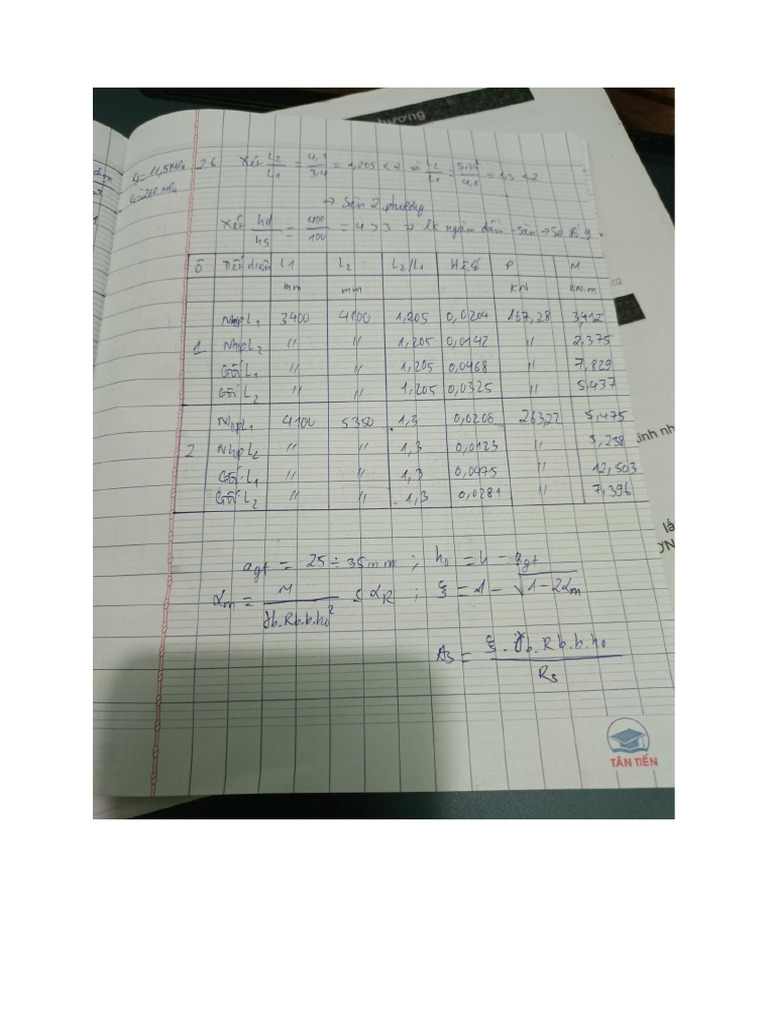 hương
Rb = 11,5 MPa
Rs = 260 MPa
2.6 Xét L2/L1 = 4,1/3,4 = 1,205 < 2 L2/L1 = /4,1 = 1,3 < 2
→ Sàn 2 phương
Xét hd/hs = 400/100 = 4 > 3 → lk ngàm dầm - sàn → Sơ đồ 9
Ô Tiết diện L1 L2 L2/L1 Hệ số P M
mm mm KN KN.m
Nhịp L1 3400 4100 1,205 0,0204 167,28 3,412
1 Nhịp L2 " " 1,205 0,0142 " 2,375
Gối L1 " " 1,205 0,0468 " 7,829
Gối L2 " " 1,205 0,0325 " 5,437
Nhịp L1 4100 5350 1,3 0,0208 263,22 5,475
2 Nhịp L2 " " 1,3 0,0123 " 3,238
Gối L1 " " 1,3 0,0475 " 12,503
Gối L2 " " 1,3 0,0281 " 7,396
agt = 25 ÷ 35 mm ; h0 = h - agt
αm = M/(γb.Rb.b.h0²) ≤ αR ; ξ = 1 - √(1-2αm)
As = ξ.γb.Rb.b.h0/Rs
TÂN TIẾN